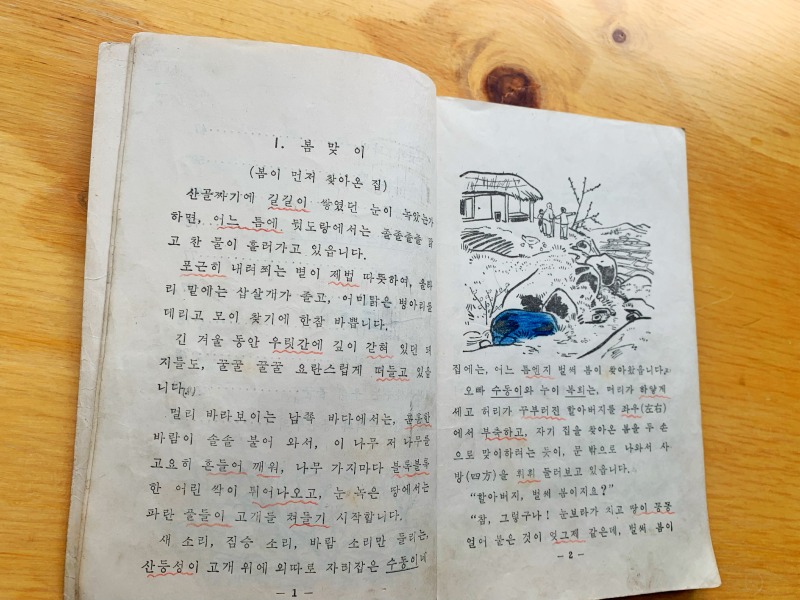 1. 봄 맞 이
(봄이 먼저 찾아온 집)
산골짜기에 길길이 쌓였던 눈이 녹았는가
하면, 어느 틈에 뒷도랑에서는 졸졸졸졸 맑
고 찬 물이 흘러가고 있읍니다.
포근히 내려쬐는 볕이 제법 따뜻하여, 울타
리 밑에는 삽살개가 졸고, 어미닭은 병아리를
데리고 모이 찾기에 한참 바쁩니다.
긴 겨울 동안 우릿간에 깊이 갇혀 있던 돼
지들도, 꿀꿀 꿀꿀 요란스럽게 떠들고 있읍
니다.
멀리 바라보이는 남쪽 바다에서는, 훈훈한
바람이 솔솔 불어 와서, 이 나무 저 나무를
고요히 흔들어 깨워, 나무 가지마다 블룩블룩
한 어린 싹이 튀어나오고, 눈 녹은 땅에서는
파란 풀들이 고개를 쳐들기 시작합니다.
새 소리, 짐승 소리, 바람 소리만 들리는,
산등성이 고개 위에 외따로 자리잡은 수동이네
- 1 -
집에는, 어느 틈엔지 벌써 봄이 찾아왔읍니다.
오빠 수동이와 누이 복희는, 머리가 하얗게
세고 허리가 꾸부러진 할아버지를 좌우(左右)
에서 부축하고, 자기 집을 찾아온 봄을 두 손
으로 맞이하려는 듯이, 문 밖으로 나와서 사
방(四方)을 휘휘 둘러보고 있읍니다.
"할아버지, 벌써 봄이지요?"
"참, 그렇구나! 눈보라가 치고 땅이 꽁꽁
얼어 붙은 것이 엊그제 같은데, 벌써 봄이
- 2 -